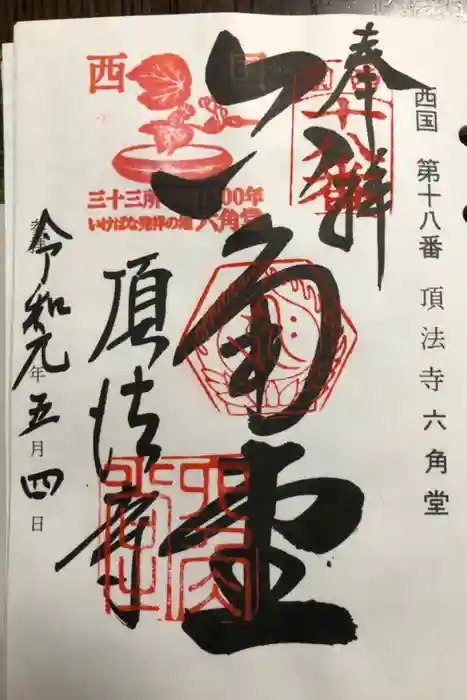 西国 第十八番 頂法寺六角堂
奉拝
西国十八番
六角堂
西国
三十三所
00年
いけばな発祥の地 六角堂
頂法寺
令和元年五月四日